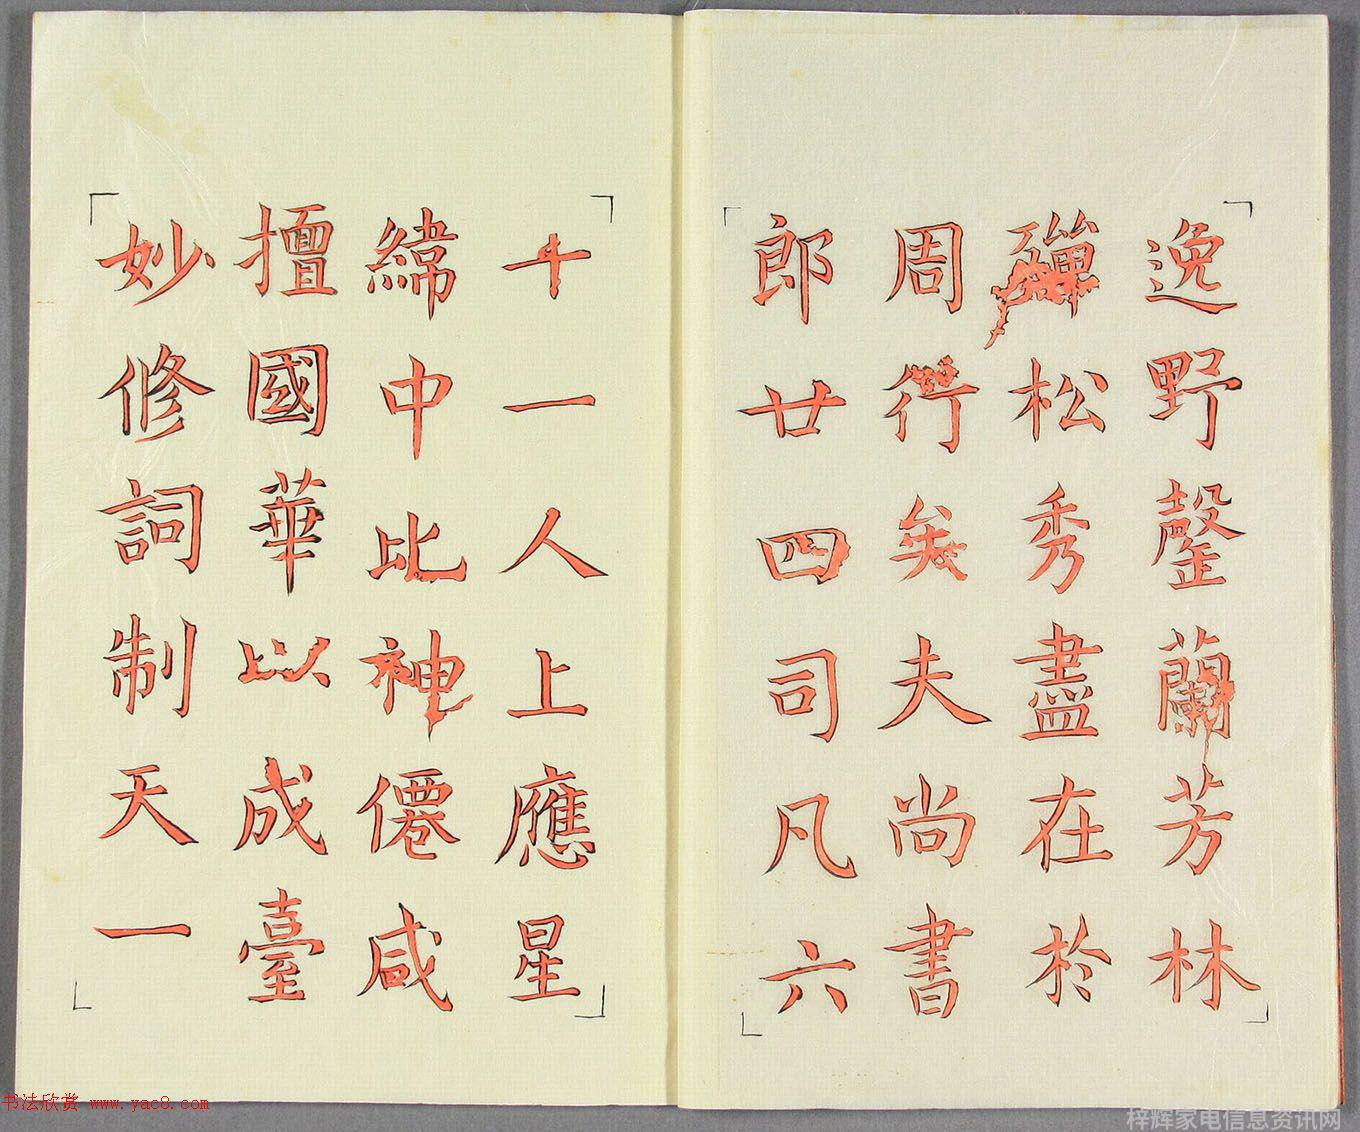 逸野罄蘭芳林
殫松秀盡在於
周行矣夫尚書
郎廿四司凡六
十一人上應星
緯中比神僊咸
擅國華以成臺
妙修詞制天一
书法欣赏 www.yac8.com
梓辉家电信息资讯网